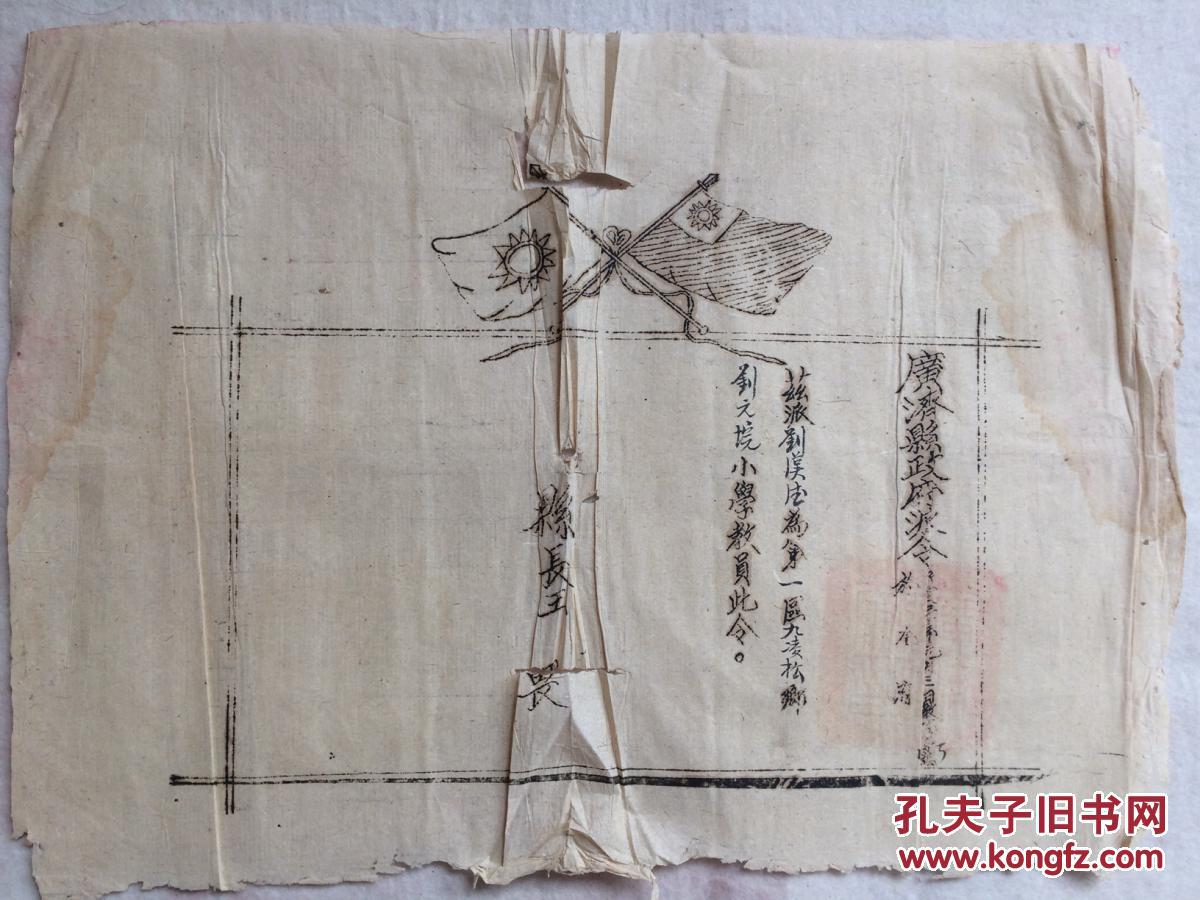 廣濟縣政府派令
茲派劉漢佐為第一區九凌松鄉
劉元垸小學教員此令。
縣長王
孔夫子旧书网
www.kongfz.com